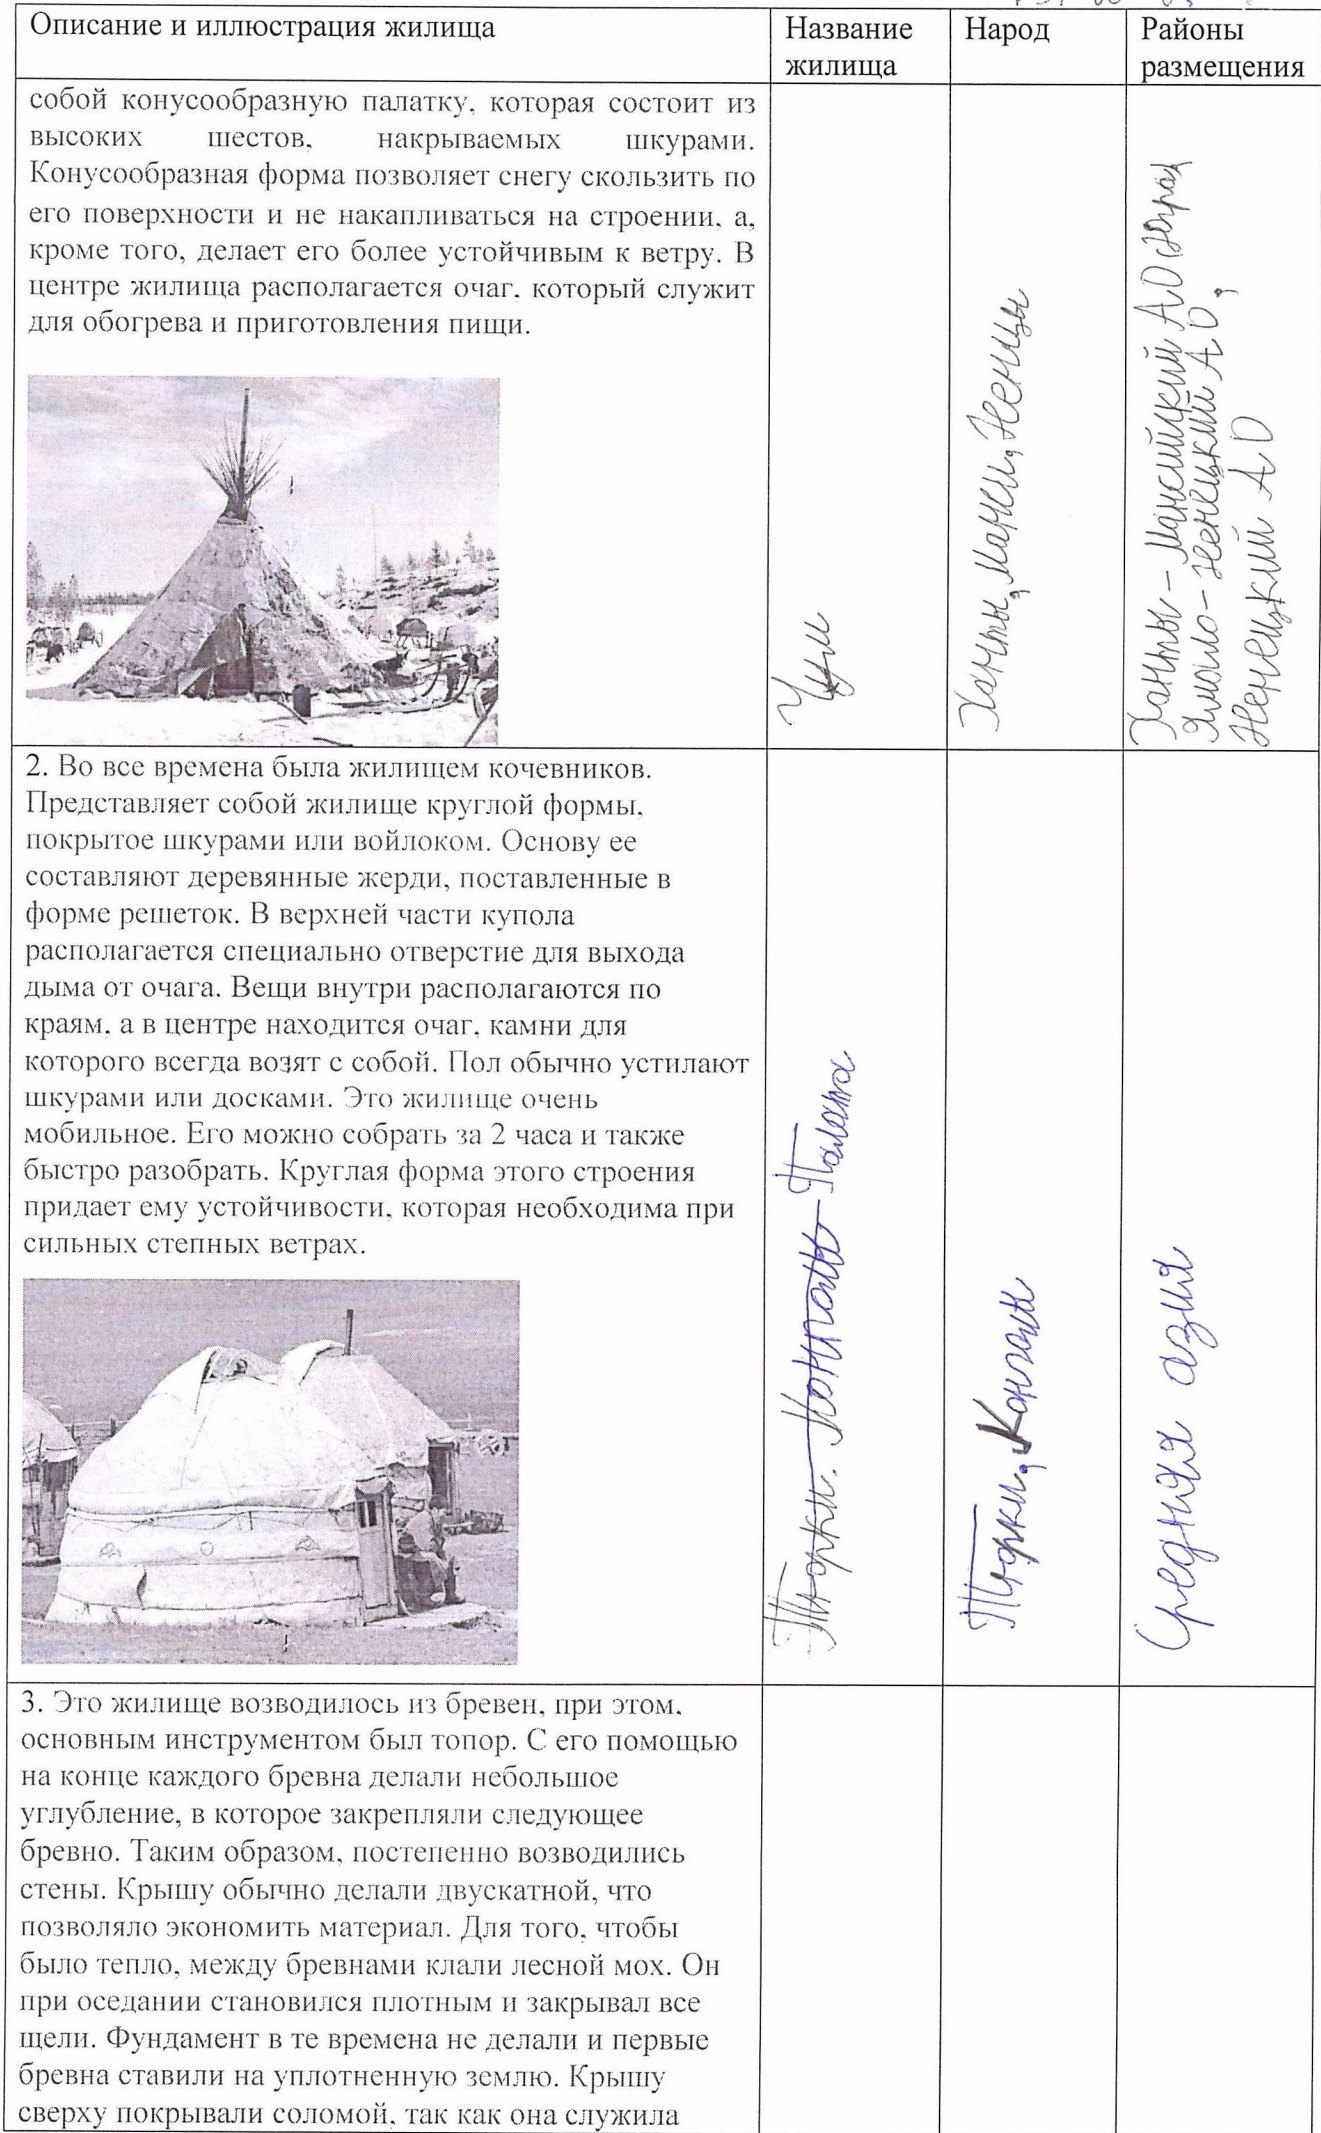 Описание и иллюстрация жилища
Название
жилища
Народ
Районы
размещения
собой конусообразную палатку, которая состоит из
высоких шестов, накрываемых шкурами.
Конусообразная форма позволяет снегу скользить по
его поверхности и не накапливаться на строении, а,
кроме того, делает его более устойчивым к ветру. В
центре жилища располагается очаг, который служит
для обогрева и приготовления пищи.
Чум
Ханты, манси, Ненцы
Ханты - Мансийский АО (Югра),
Ямало - Ненецкий АО,
Ненецкий АО
2. Во все времена была жилищем кочевников.
Представляет собой жилище круглой формы,
покрытое шкурами или войлоком. Основу ее
составляют деревянные жерди, поставленные в
форме решеток. В верхней части купола
располагается специально отверстие для выхода
дыма от очага. Вещи внутри располагаются по
краям, а в центре находится очаг, камни для
которого всегда возят с собой. Пол обычно устилают
шкурами или досками. Это жилище очень
мобильное. Его можно собрать за 2 часа и также
быстро разобрать. Круглая форма этого строения
придает ему устойчивости, которая необходима при
сильных степных ветрах.
Тюрки. Палата
Тюрки,
Средняя азия
3. Это жилище возводилось из бревен, при этом,
основным инструментом был топор. С его помощью
на конце каждого бревна делали небольшое
углубление, в которое закрепляли следующее
бревно. Таким образом, постепенно возводились
стены. Крышу обычно делали двускатной, что
позволяло экономить материал. Для того, чтобы
было тепло, между бревнами клали лесной мох. Он
при оседании становился плотным и закрывал все
щели. Фундамент в те времена не делали и первые
бревна ставили на уплотненную землю. Крышу
сверху покрывали соломой, так как она служила